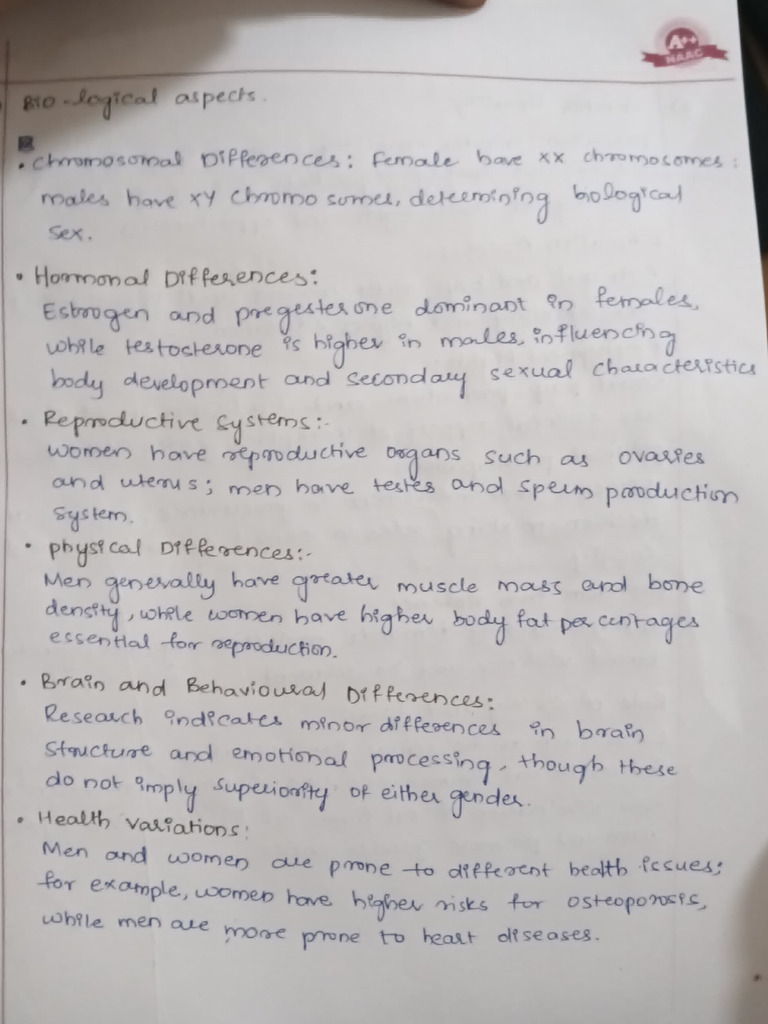 A++
NAAC
Bio-logical aspects.
• Chromosomal Differences: Female have XX chromosomes;
males have XY chromo somes, determining biological
sex.
• Hormonal Differences:
Estrogen and pregesterone dominant in females,
while testosterone is higher in males, influencing
body development and secondary sexual characteristics
• Reproductive systems:-
Women have reproductive organs such as ovaries
and uterus; men have testes and sperm production
system.
• physical Differences:-
Men generally have greater muscle mass and bone
density, while women have higher body fat per centages
essential for reproduction.
• Brain and Behavioural Differences:
Research indicates minor differences in brain
structure and emotional processing, though these
do not imply superiority of either gender.
• Health variations:
Men and women are prone to different health issues;
for example, women have higher risks for osteoporosis,
while men are more prone to heart diseases.